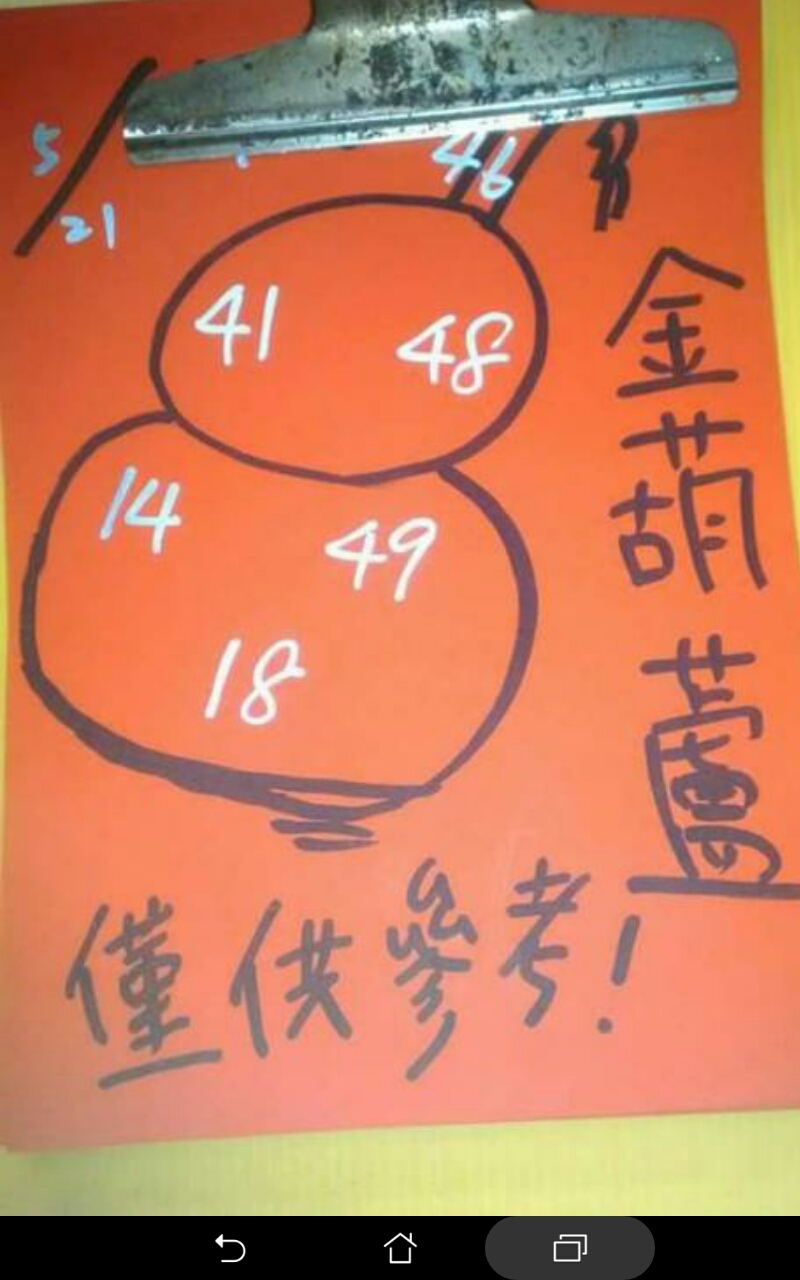 5/21
46
41 48
14 49
18
金葫蘆
僅供參考!